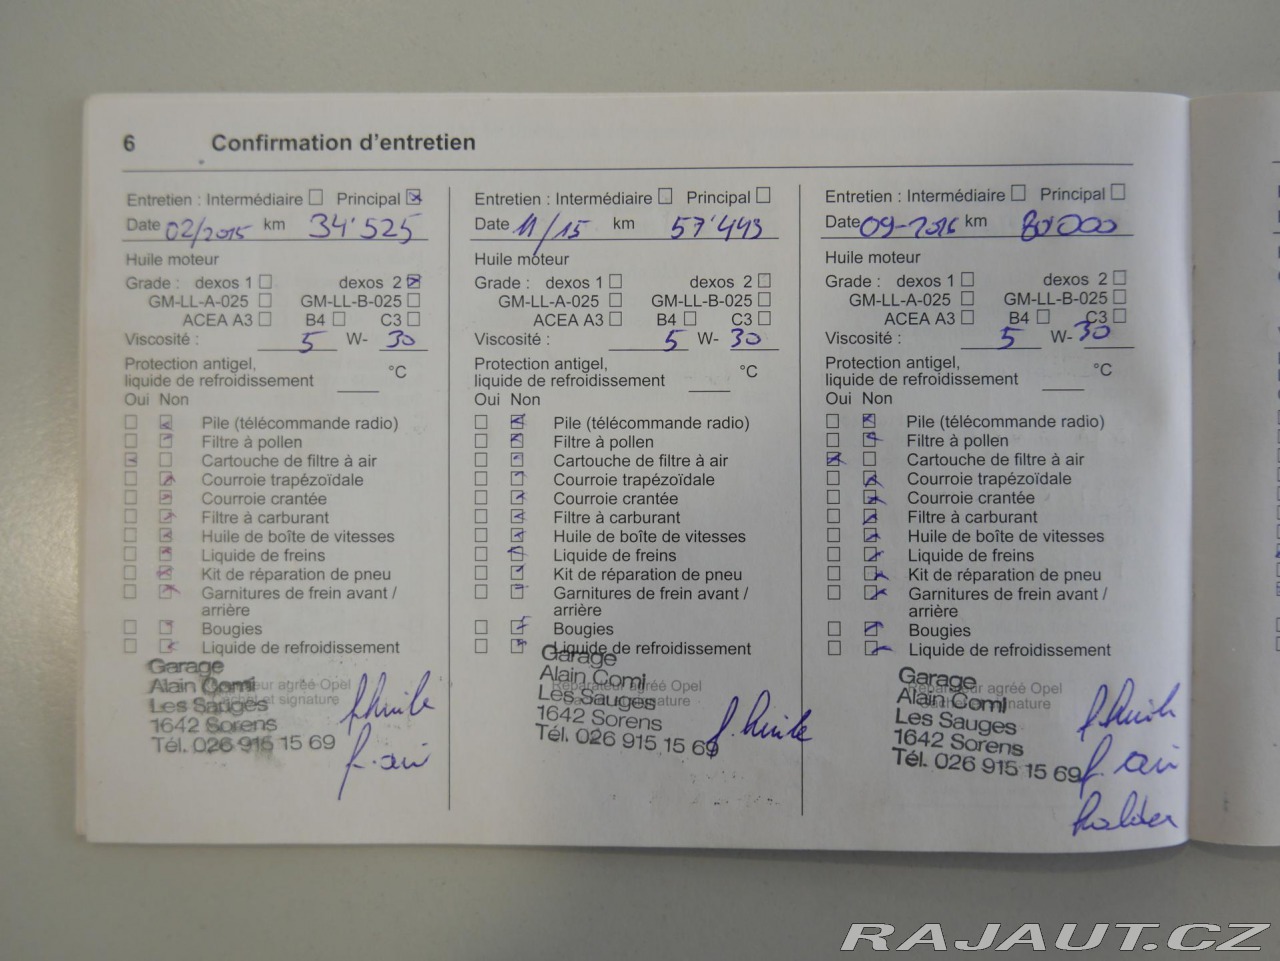 6 Confirmation d'entretien
Entretien : Intermédiaire Principal
Date 02/2015 km 34'525
Huile moteur
Grade : dexos 1 dexos 2
GM-LL-A-025 GM-LL-B-025
ACEA A3 B4 C3
Viscosité : 5 W- 30
Protection antigel,
liquide de refroidissement °C
Oui Non
Pile (télécommande radio)
Filtre à pollen
Cartouche de filtre à air
Courroie trapézoïdale
Courroie crantée
Filtre à carburant
Huile de boîte de vitesses
Liquide de freins
Kit de réparation de pneu
Garnitures de frein avant /
arrière
Bougies
Liquide de refroidissement
Garage
Alain Comi
Les Sauges
1642 Sorens
Tél. 026 915 15 69
f. huile
f. air
Entretien : Intermédiaire Principal
Date 11/15 km 57'443
Huile moteur
Grade : dexos 1 dexos 2
GM-LL-A-025 GM-LL-B-025
ACEA A3 B4 C3
Viscosité : 5 W- 30
Protection antigel,
liquide de refroidissement °C
Oui Non
Pile (télécommande radio)
Filtre à pollen
Cartouche de filtre à air
Courroie trapézoïdale
Courroie crantée
Filtre à carburant
Huile de boîte de vitesses
Liquide de freins
Kit de réparation de pneu
Garnitures de frein avant /
arrière
Bougies
Liquide de refroidissement
Garage
Réparateur agréé Opel
Alain Comi
Les Sauges
1642 Sorens
Tél. 026 915 15 69
f. huile
Entretien : Intermédiaire Principal
Date 09-2016 km 80'000
Huile moteur
Grade : dexos 1 dexos 2
GM-LL-A-025 GM-LL-B-025
ACEA A3 B4 C3
Viscosité : 5 W- 30
Protection antigel,
liquide de refroidissement °C
Oui Non
Pile (télécommande radio)
Filtre à pollen
Cartouche de filtre à air
Courroie trapézoïdale
Courroie crantée
Filtre à carburant
Huile de boîte de vitesses
Liquide de freins
Kit de réparation de pneu
Garnitures de frein avant /
arrière
Bougies
Liquide de refroidissement
Garage
Réparateur agréé Opel
Alain Comi
Cachet et signature
Les Sauges
1642 Sorens
Tél. 026 915 15 69
f. huile
f. air
RAJAUT.CZ